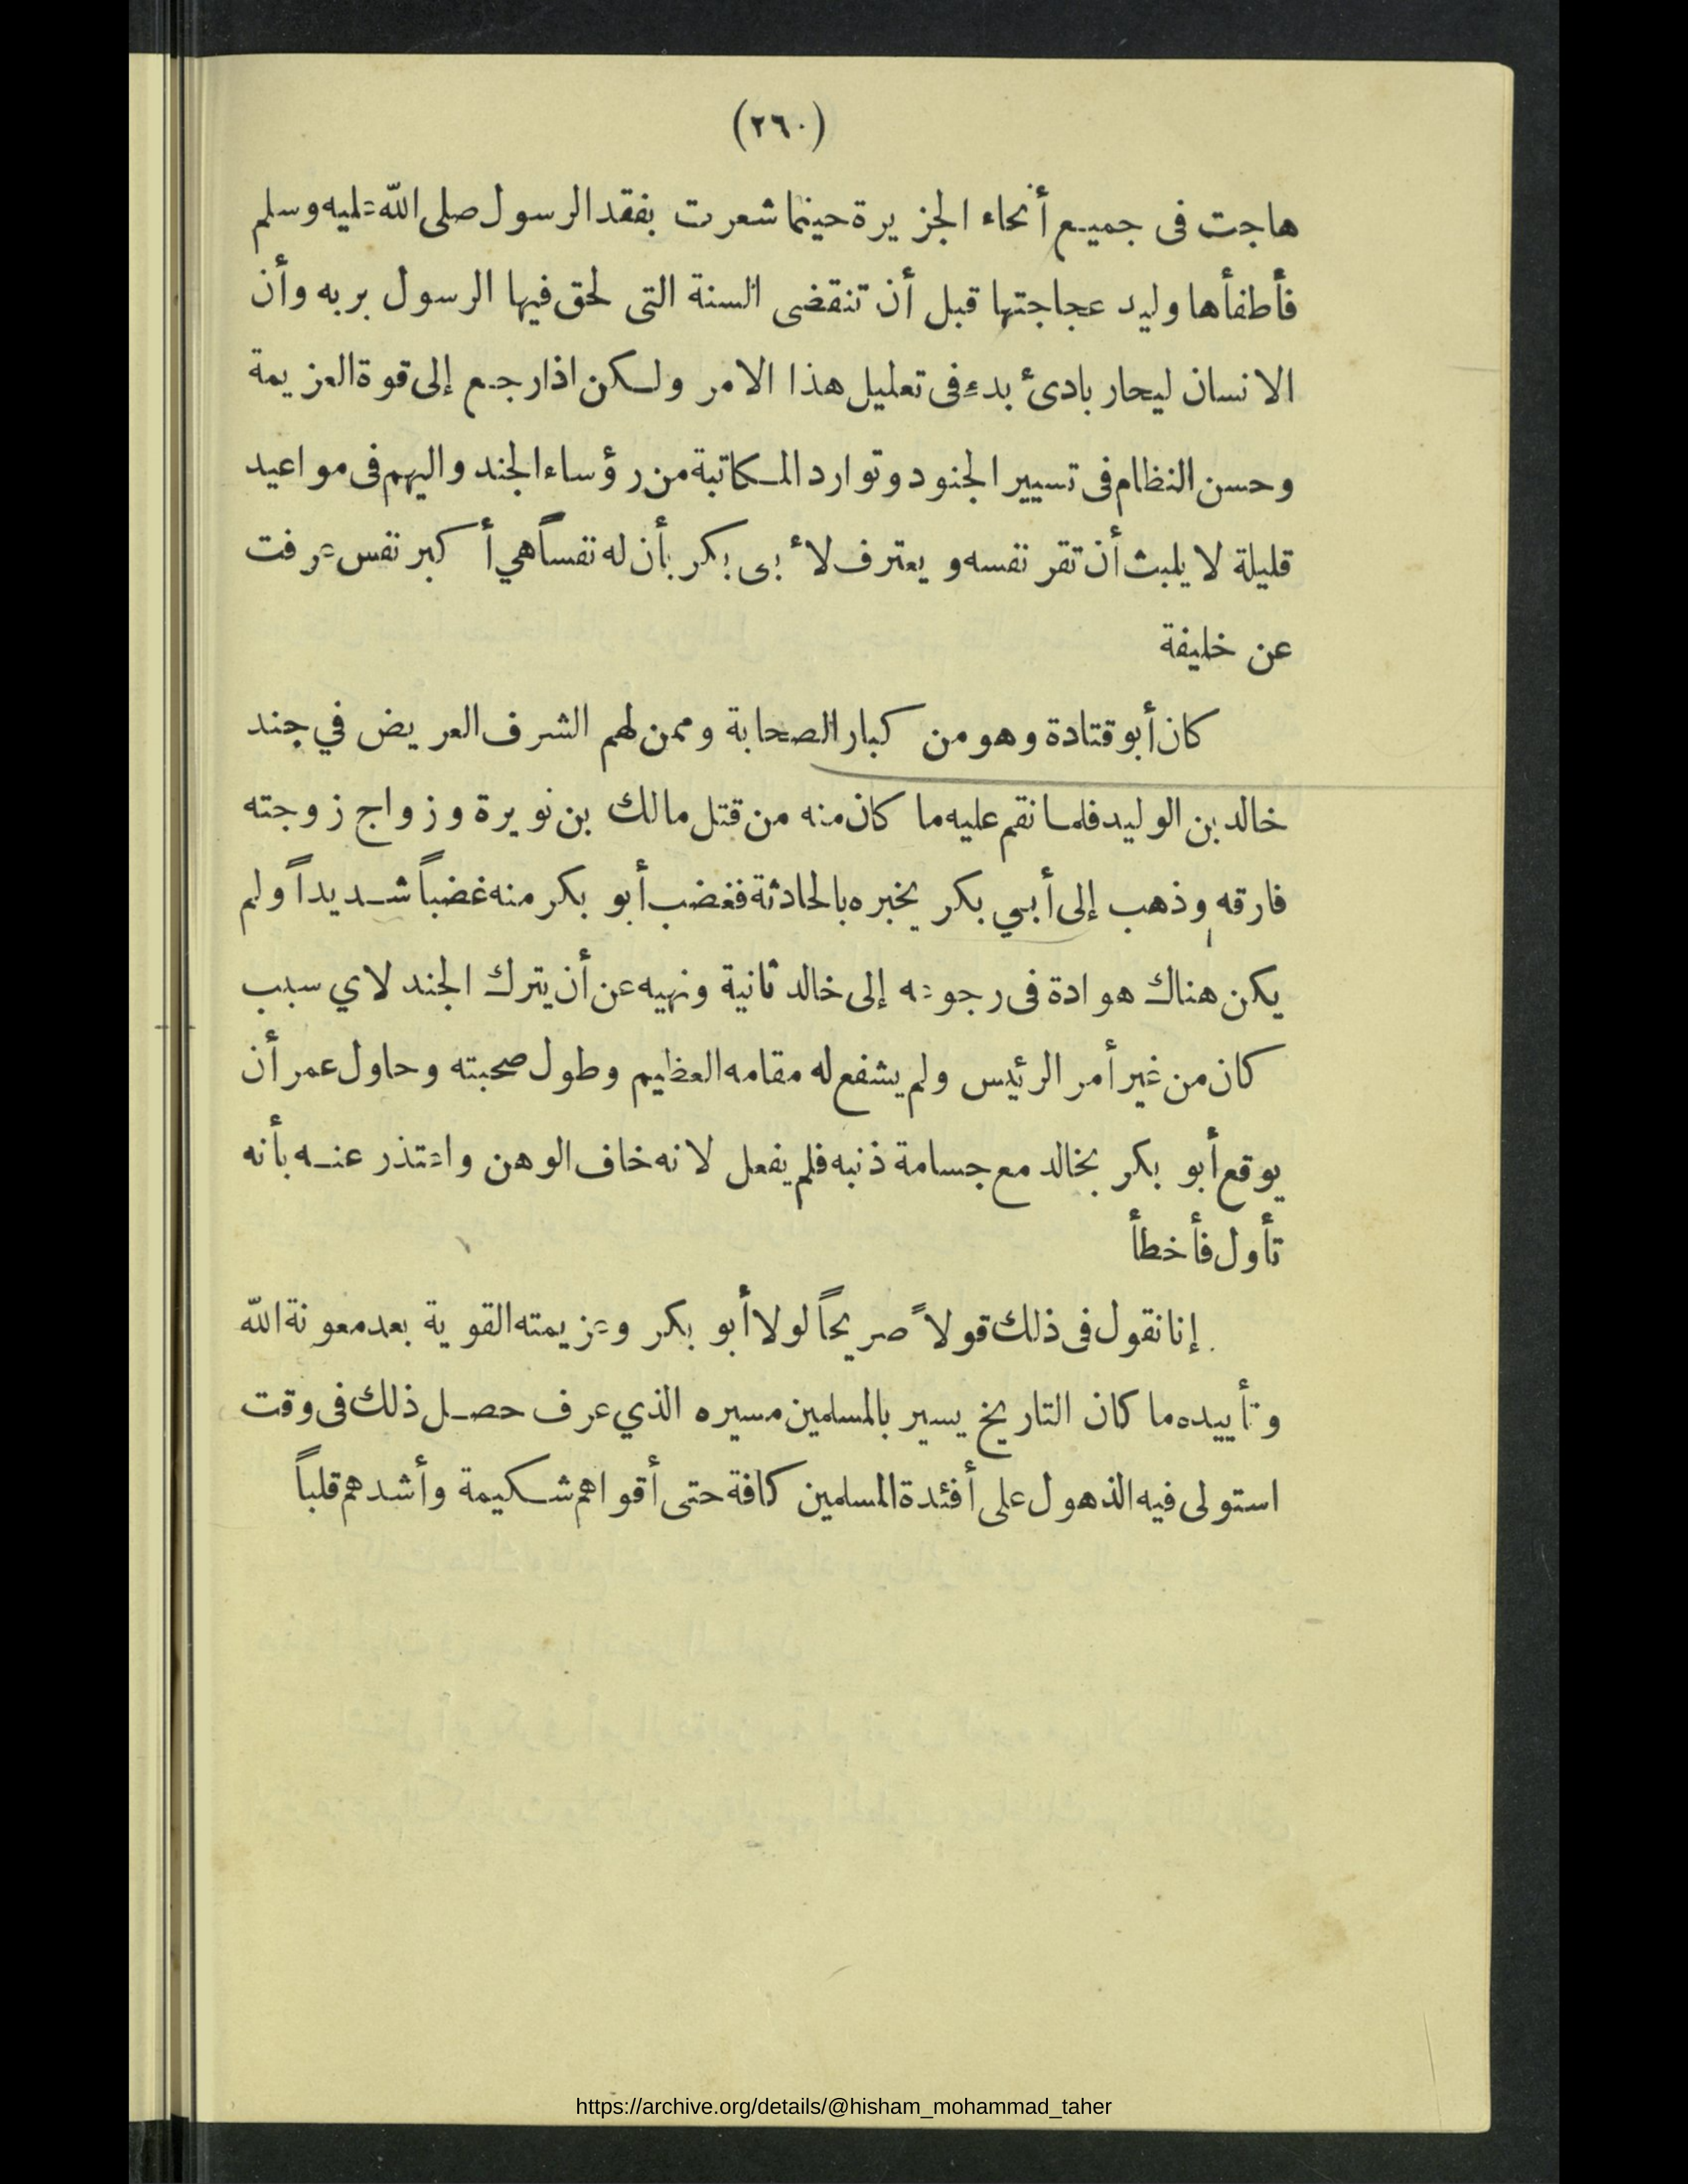 (٢٦٠)
هاجت فى جميع أنحاء الجزيرة حينما شعرت بفقد الرسول صلى الله عليه وسلم
فأطفأها وليد عجاجتها قبل أن تنقضى السنة التى لحق فيها الرسول بربه وأن
الانسان ليحار بادئ بدء فى تعليل هذا الامر ولكن اذا رجع إلى قوة العزيمة
وحسن النظام فى تسيير الجنود وتوارد المكاتبة من رؤساء الجند واليهم فى مواعيد
قليلة لا يلبث أن تقر نفسه ويعترف لأبى بكر بأن له نفساً هي أكبر نفس عرفت
عن خليفة
كان أبو قتادة وهو من كبار الصحابة وممن لهم الشرف العريض في جند
خالد بن الوليد فلما نقم عليه ما كان منه من قتل مالك بن نويرة وزواج زوجته
فارقه وذهب إلى أبي بكر يخبره بالحادثة فغضب أبو بكر منه غضباً شديداً ولم
يكن هناك هوادة فى رجوعه إلى خالد ثانية ونهيه عن أن يترك الجند لاي سبب
كان من غير أمر الرئيس ولم يشفع له مقامه العظيم وطول صحبته وحاول عمر أن
يوقع أبو بكر بخالد مع جسامة ذنبه فلم يفعل لانه خاف الوهن واعتذر عنه بأنه
تأول فأخطأ
إنا نقول فى ذلك قولاً صريحاً لولا أبو بكر وعزيمته القوية بعد معونة الله
وتأييده ما كان التاريخ يسير بالمسلمين مسيره الذي عرف حصل ذلك فى وقت
استولى فيه الذهول على أفئدة المسلمين كافة حتى أقواهم شكيمة وأشدهم قلباً
https://archive.org/details/@hisham_mohammad_taher